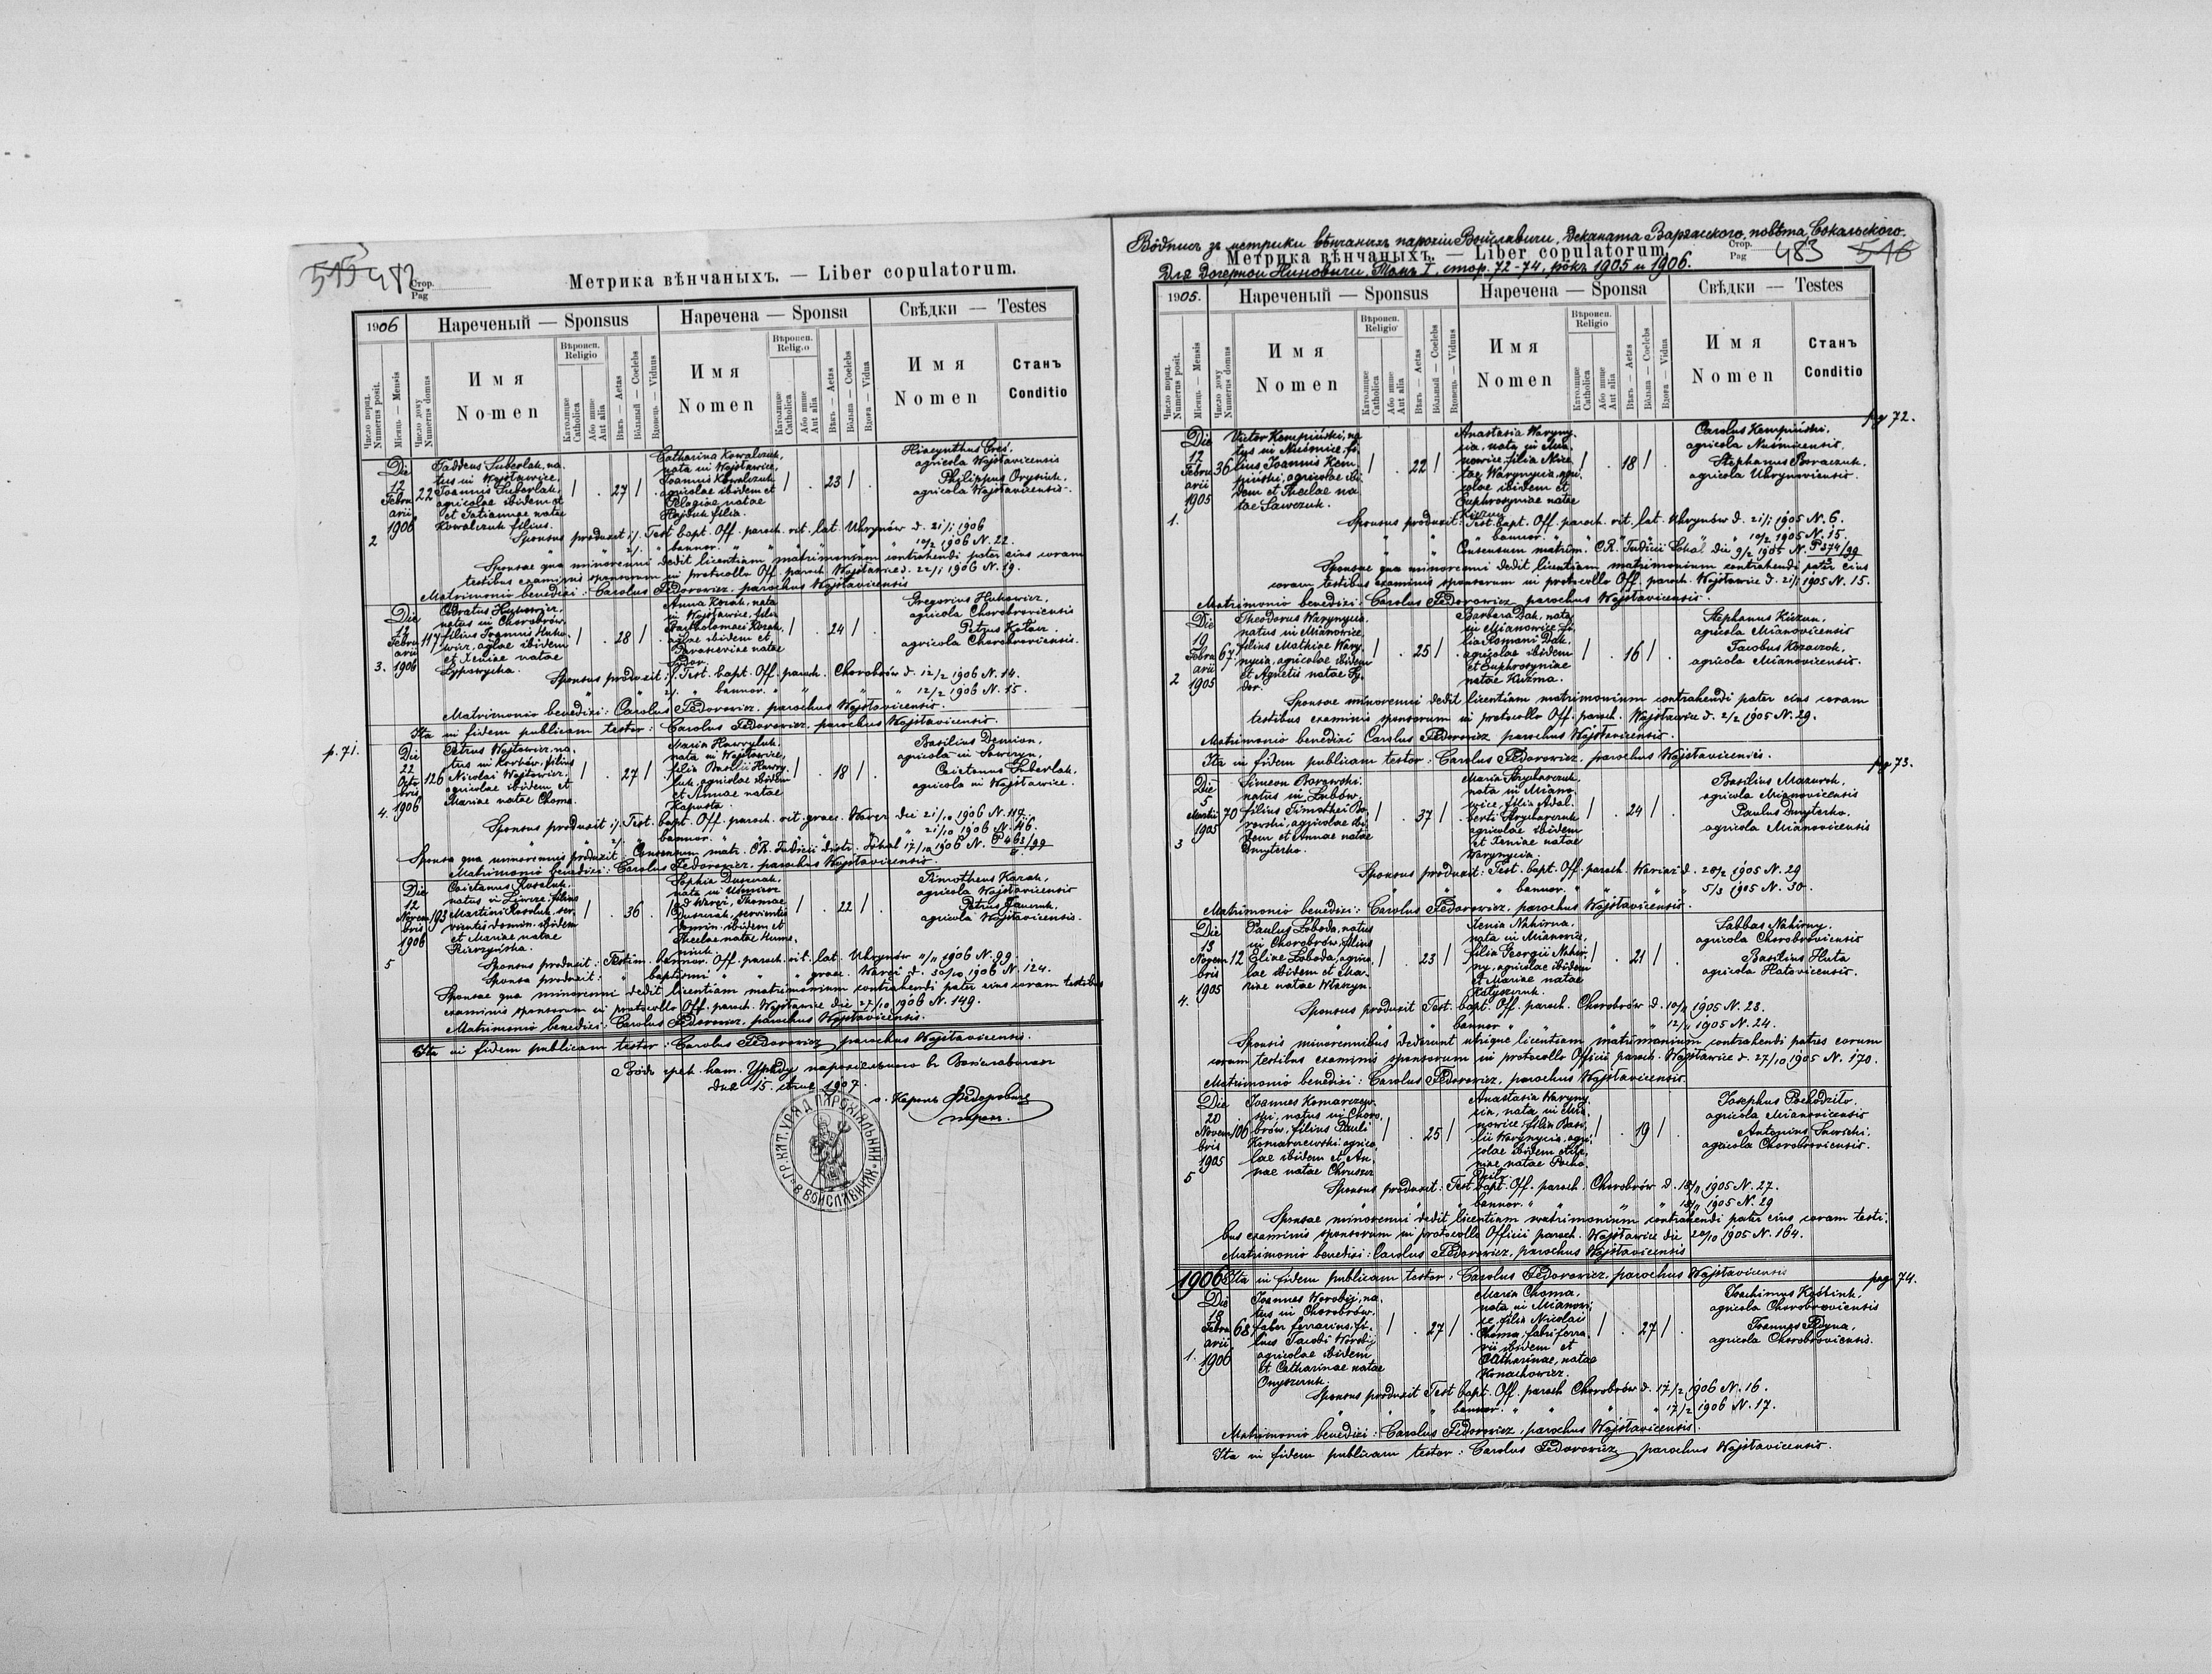 482
Стор.
Pag
Метрика вѣнчаныхъ. — Liber copulatorum.
1906
Нареченый — Sponsus
Наречена — Sponsa
Свѣдки — Testes
Число поряд. Numerus posit.
Місяць — Mensis
Число дому Numerus domus
Имя Nomen
Вѣроисп. Religio
Католицке Catholica
Або инше Aut alia
Вѣкъ — Aetas
Вôльный — Coelebs
Вдовець — Viduus
Имя Nomen
Вѣроисп. Religio
Католицке Catholica
Або инше Aut alia
Вѣкъ — Aetas
Вôльна — Coelebs
Вдова — Vidua
Имя Nomen
Станъ Conditio
2
Die 12 Februarii 1906
22
Taddeus Suberlak, na-
tus in Wojsławice,
Joannis Suberlak,
agricolae ibidem et
et Tatiannae natae
Kowalczuk filius.
27
Catharina Kowalczuk,
nata in Wojsławice,
Joannis Kowalczuk
agricolae ibidem et
Pelagiae natae
Hajduk filia.
23
Hiacynthus Greś,
agricola Wojsławicensis
Philippus Orysiuk,
agricola Wojsławicensis.
Sponsus produxit 1/. Test. bapt. Off. paroch. rit. lat. Uhrynów d. 21/1 1906
" " 2/. " bannor. " " " " " 10/2 1906 N. 22.
Sponsae qua minorenni dedit licentiam matrimonium contrahendi pater eius coram
testibus examinis sponsorum in protocollo Off. paroch. Wojsławice d. 22/1 1906 N. 19.
Matrimonio benedixi: Carolus Fedorowicz, parochus Wojsławicensis
3.
Die 12 Februarii 1906
117
natus in Chorobrów,
filius Joannis Huko-
wicz, aglae ibidem
et Xeniae natae
28
Anna Korak, nata
in Wojsławice, filia
Bartholomaei Korak,
aglae ibidem et
Parasceviae natae
24
Gregorius Hukowicz,
agricola Chorobroviensis
Petrus
agricola Chorobroviensis.
Sponsus produxit: 1/. Test. bapt. Off. paroch. Chorobrów d. 12/2 1906 N. 14.
" " 2/. " bannor. " " " " 12/2 1906 N. 15.
Matrimonio benedixi: Carolus Fedorowicz, parochus Wojsławicensis.
Ita in fidem publicam testor: Carolus Fedorowicz, parochus Wojsławicensis.
p. 71.
4.
Die 22 Octobris 1906
126
Petrus Wojtowicz, na-
tus in Korków, filius
Nicolai Wojtowicz,
agricolae ibidem et
Mariae natae Choma.
27
Maria Hawryluk,
nata in Wojsławice,
filia Basilii Hawry-
luk, agricolae ibidem
et Annae natae
Kapusta.
18
Basilius Demian,
agricola in
Caietanus Suberlak,
agricola in Wojsławice.
Sponsus produxit 1/. Test. bapt. Off. paroch. rit. graec. Waręż die 21/10 1906 N. 119.
" " 2/. " bannor. " " " " " " 21/10 1906 N. 46.
Sponsa qua minorennis produxit Consensum matr. CR. Judicii distr. Sokal 17/10 1906 N.
Matrimonio benedixi: Carolus Fedorowicz, parochus Wojsławicensis.
5
Die 12 Novembris 1906
193
Caietanus Rosoluk,
Martini Rosoluk, ser-
vientis domin. ibidem
et Mariae natae
36
Sophia
ad Waręż, Thomae
servientis
domin. ibidem et
Theclae natae
22
Timotheus Karak,
agricola Wojsławicensis
Petrus
agricola Wojsławicensis.
Sponsus produxit: Testim. bannor. Off. paroch. rit. lat. Uhrynów 11/11 1906 N. 99.
Sponsa produxit: " baptismi " " " graec. Waręż d. 30/10 1906 N. 124.
Sponsae qua minorenni dedit licentiam matrimonium contrahendi pater eius coram testibus
examinis sponsorum in protocollo Off. paroch. Wojsławice die 27/10 1906 N. 149.
Matrimonio benedixi: Carolus Fedorowicz, parochus Wojsławicensis.
Ita in fidem publicam testor: Carolus Fedorowicz parochus Wojsławicensis.
дня 15. 1907.
Федорович
Г.Р. КАТ. УРЯД ПАРОХІЯЛЬНИЙ В ВОЙСЛАВИЧАХ
Вôдпись зъ метрики вѣнчаныхъ парохіи Войславичи, деканата Варяжского, повѣта Сокальского.
Стор.
Pag
483
516
Метрика вѣнчаныхъ. — Liber copulatorum.
Томъ I, стор. 72-74, рôкъ 1905 и 1906.
1905.
Нареченый — Sponsus
Наречена — Sponsa
Свѣдки — Testes
Число поряд. Numerus posit.
Місяць — Mensis
Число дому Numerus domus
Имя Nomen
Вѣроисп. Religio
Католицке Catholica
Або инше Aut alia
Вѣкъ — Aetas
Вôльный — Coelebs
Вдовець — Viduus
Имя Nomen
Вѣроисп. Religio
Католицке Catholica
Або инше Aut alia
Вѣкъ — Aetas
Вôльна — Coelebs
Вдова — Vidua
Имя Nomen
Станъ Conditio
pag 72.
1.
Die 12 Februarii 1905
36
Victor Kempiński, na-
tus in Nuśmice, fi-
lius Joannis Kem-
piński, agricolae ibi-
dem et Theclae na-
tae Sawczuk.
22
Anastasia Waryny-
cia, nata in Mia-
nowice, filia Nice-
tae Warynycia, agri-
colae ibidem et
Euphrosyniae natae
18
Carolus Kempiński,
agricola Nuśmicensis.
Stephanus Boraczuk,
agricola Uhrynoviensis.
Sponsus produxit: Test. bapt. Off. paroch. rit. lat. Uhrynów d. 21/1 1905 N. 6.
" " " bannor. " " " " " 10/2 1905 N. 15.
" " Consensum matrim. CR. Judicii Sokal die 9/2 1905 N. P 374/99
Sponsae qua minorenni dedit licentiam matrimonium contrahendi pater eius
coram testibus examinis sponsorum in protocollo Off. paroch. Wojsławice d. 21/1 1905 N. 15.
Matrimonio benedixi: Carolus Fedorowicz, parochus Wojsławicensis.
2
Die 19 Februarii 1905
67
Theodorus Warynycia,
natus in Mianowice,
filius Mathiae Wary-
nycia, agricolae ibidem
et Agnetis natae Sy-
dor.
25
Barbara Dak, nata
in Mianowice, fi-
lia Romani Dak,
agricolae ibidem
et Euphrosyniae
natae Kuźma.
16
Stephanus Kiczun,
agricola Mianovicensis
Jacobus Kozaczok,
agricola Mianovicensis.
Sponsae minorenni dedit licentiam matrimonium contrahendi pater eius coram
testibus examinis sponsorum in protocollo Off. paroch. Wojsławice d. 2/2 1905 N. 29.
Matrimonio benedixi Carolus Fedorowicz parochus Wojsławicensis.
Ita in fidem publicam testor: Carolus Fedorowicz, parochus Wojsławicensis.
pag 73.
3
Die 5 Martii 1905
70
Simeon Borowski,
natus in Łubów,
filius Timothei Bo-
rowski, agricolae ibi-
dem et Annae natae
Dmyterko.
37
Maria Strycharczuk,
nata in Miano-
wice, filia Adal-
berti Strycharczuk
agricolae ibidem
et Xeniae natae
Warynycia.
24
Basilius Mazurok,
agricola Mianovicensis
Paulus Dmyterko,
agricola Mianovicensis
Sponsus produxit: Test. bapt. Off. paroch. Waręż d. 20/2 1905 N. 29
" " " bannor. " " " " 5/3 1905 N. 30.
Matrimonio benedixi: Carolus Fedorowicz, parochus Wojsławicensis.
4.
Die 13 Novembris 1905
12
Paulus Łoboda, natus
in Chorobrów, filius
Eliae Łoboda, agrico-
lae ibidem et Ma-
riae natae Właszyn.
23
Xenia Nahirna,
nata in Mianowice,
filia Georgii Nahir-
ny, agricolae ibidem
et Mariae natae
21
Sabbas Nahirny,
agricola Chorobroviensis
Basilius Huta
agricola
Sponsus produxit Test. bapt. Off. paroch. Chorobrów d. 10/11 1905 N. 23.
" " " bannor " " " " 12/11 1905 N. 24.
Sponsis minorennibus dederunt utrique licentiam matrimonium contrahendi patres eorum
coram testibus examinis sponsorum in protocollo Officii paroch. Wojsławice d. 27/10 1905 N. 170.
Matrimonio benedixi: Carolus Fedorowicz, parochus Wojsławicensis.
5
Die 20 Novembris 1905
106
Joannes Komarzew-
ski, natus in Choro-
brów, filius Pauli
Komarzewski agrico-
lae ibidem et An-
nae natae Chruszcz
25
Anastasia Waryny-
cia, nata in Mia-
nowice, filia Basi-
lii Warynycia, agri-
colae ibidem et
natae Pocho-
dziło.
19
Josephus Pochodziło,
agricola Mianovicensis
Antonius
agricola Chorobroviensis.
Sponsus produxit: Test. bapt. Off. paroch. Chorobrów d. 18/11 1905 N. 27.
" " " bannor. " " " " 18/11 1905 N. 29
Sponsae minorenni dedit licentiam matrimonium contrahendi pater eius coram testi-
bus examinis sponsorum in protocollo Officii paroch. Wojsławice die 20/10 1905 N. 164.
Matrimonio benedixi: Carolus Fedorowicz, parochus Wojsławicensis
1906
Ita in fidem publicam testor: Carolus Fedorowicz, parochus Wojsławicensis
pag 74.
1.
Die 18 Februarii 1906
68
Joannes Worobij, na-
tus in Chorobrów,
faber ferrarius, fi-
lius Jacobi Worobij
agricolae ibidem
et Catharinae natae
Onyszczuk.
27
Maria Choma,
nata in Mianowi-
ce, filia Nicolai
Choma, fabri ferra-
rii ibidem et
Catharinae, natae
Konachowicz.
27
Joachimus Kostiuk,
agricola Chorobroviensis
Joannes Fedyna,
agricola Chorobroviensis.
Sponsus produxit Test. bapt. Off. paroch Chorobrów d. 17/2 1906 N. 16.
" " " bannor. " " " " 17/2 1906 N. 17.
Matrimonio benedixi: Carolus Fedorowicz, parochus Wojsławicensis.
Ita in fidem publicam testor: Carolus Fedorowicz parochus Wojsławicensis.